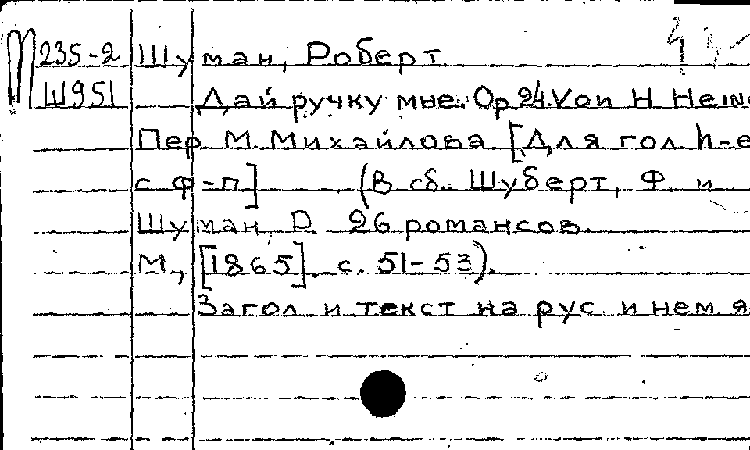 П 235-2 Шуман, Роберт.
Ш951 Дай ручку мне. Op 24. Von H Heine
Пер М. Михайлова. [Для гол h-e
с ф-п] (В сб.. Шуберт, Ф. и
Шуман, Р. 26 романсов.
М., [1865]. с. 51-53).
Загол и текст на рус и нем я